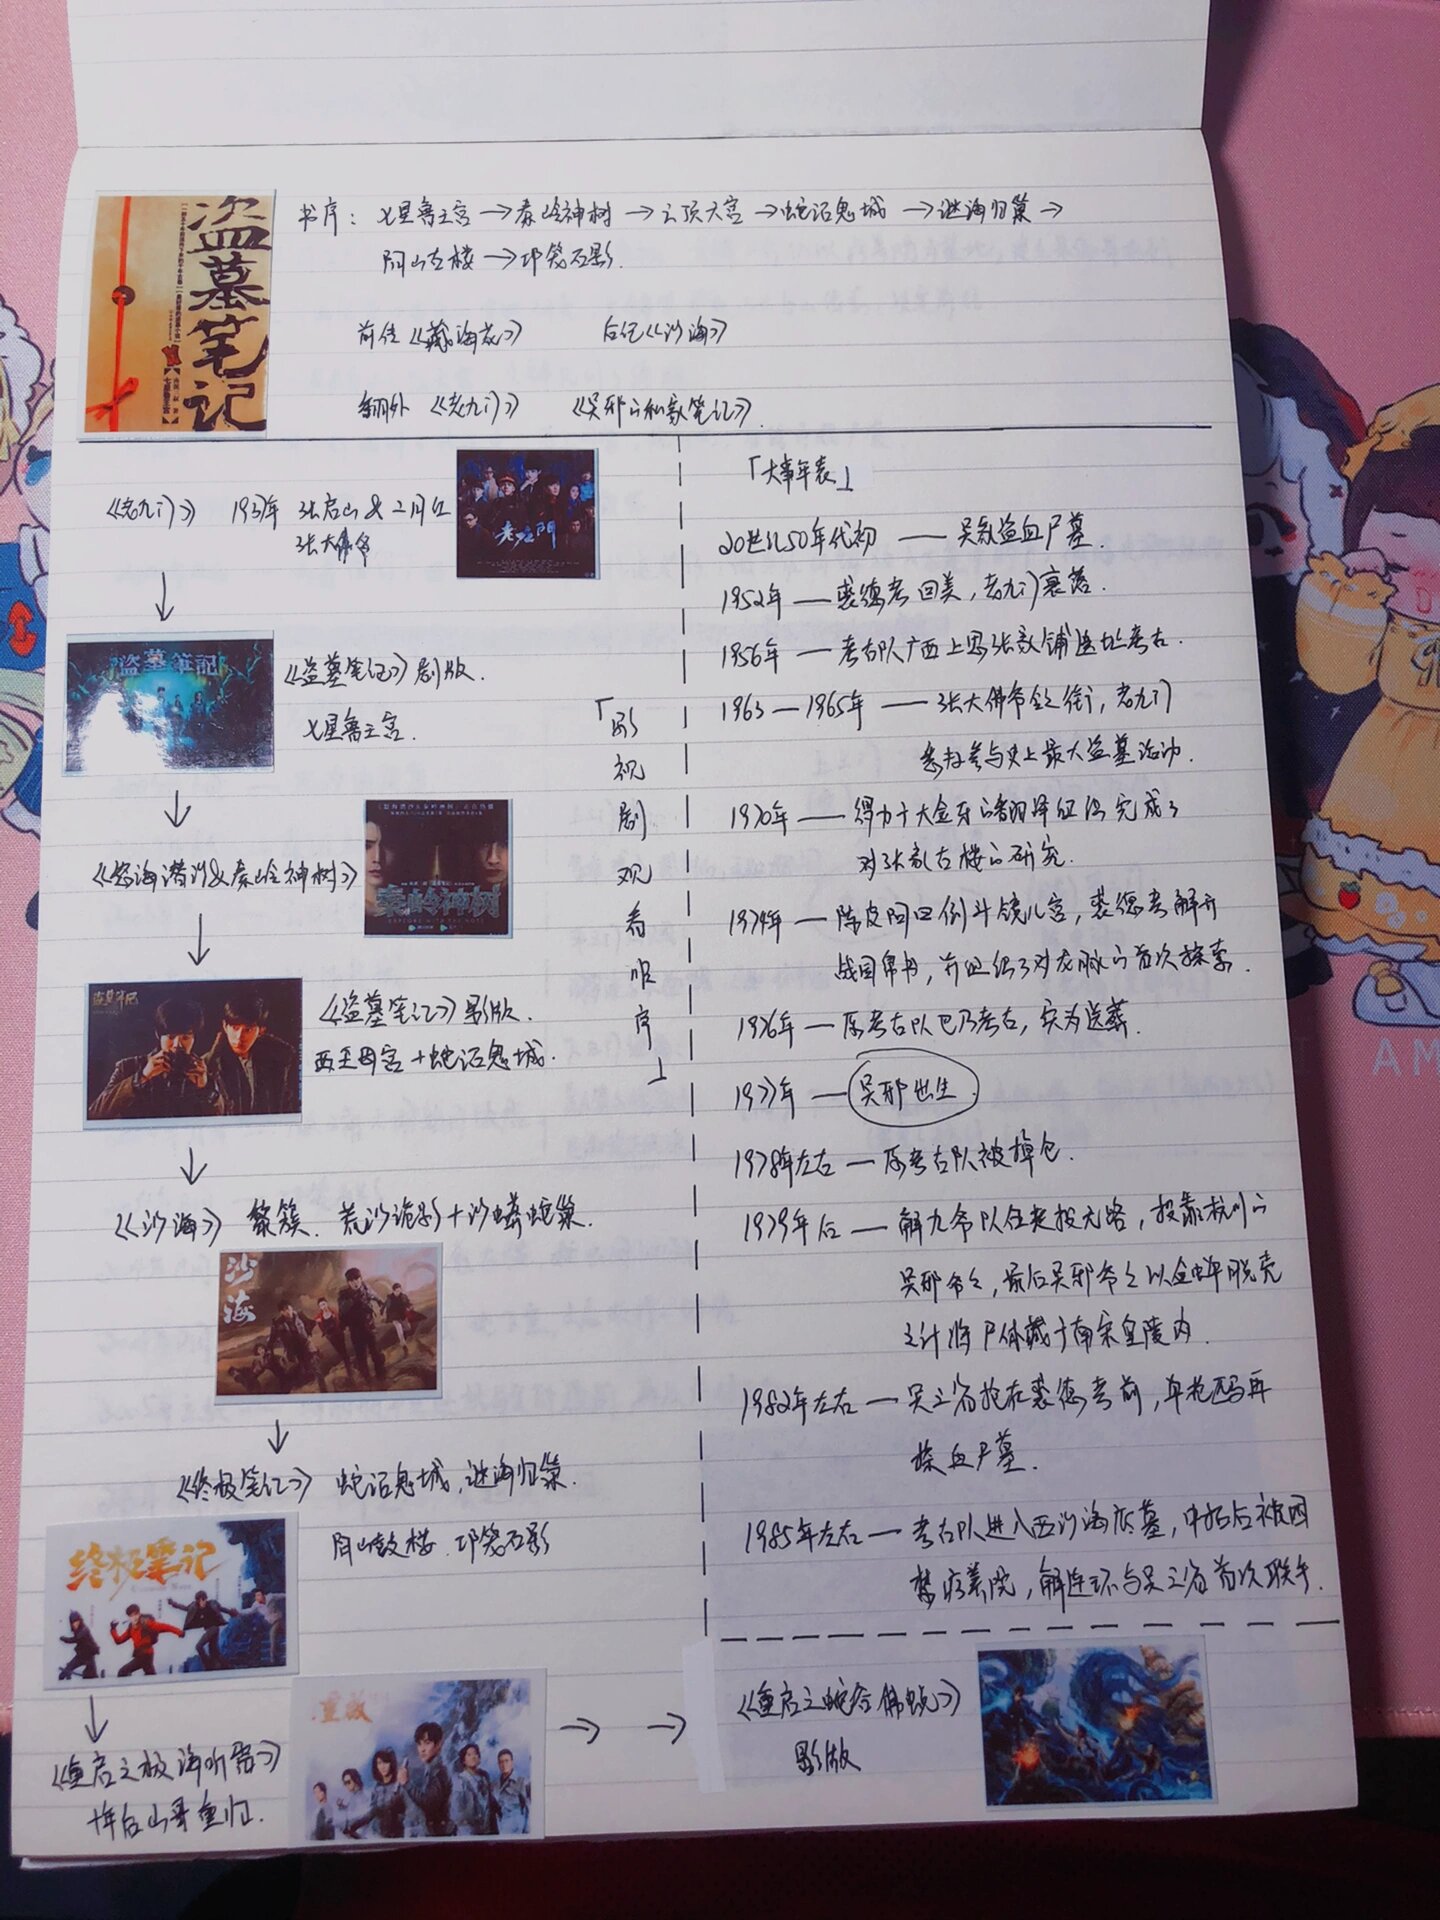 盗墓笔记
七星鲁王宫
书序：七星鲁王宫→秦岭神树→云顶天宫→蛇沼鬼城→谜海归巢→
阴山古楼→邛笼石影.
前传《藏海花》 后记《沙海》
翻外《老九门》 《吴邪的私家笔记》.
《老九门》 1937年 张启山&二月红
张大佛爷
老九門
↓
盗墓筆記
《盗墓笔记》剧版.
七星鲁王宫.
↓
《怒海潜沙&秦岭神树》
秦岭神树
↓
盗墓笔记
《盗墓笔记》影版.
西王母宫+蛇沼鬼城.
↓
《沙海》 黎簇. 荒沙诡影+沙蟒蛇巢.
沙海
↓
《终极笔记》 蛇沼鬼城,谜海归巢.
阴山鼓楼.邛笼石影
终极笔记
↓
《重启之极海听雷》
十年后小哥重归.
重啟
→ →
《重启之蛇谷佛蜕》
影版
「影视剧观看顺序」
「大事年表」
20世纪50年代初——吴家盗血尸墓.
1952年——裘德考回美,老九门衰落.
1956年——考古队广西上思张家铺遗址考古.
1963—1965年——张大佛爷令之衔,老九门
系却参与史上最大盗墓活动.
1970年——得力于大金牙的翻译组深完成了
对张家古楼的研究.
1974年—陈皮阿四倒斗镜儿宫,裘德考解开
战国帛书,并组织了对龙脉的首次探索.
1976年—原考古队巴乃考古,实为送葬.
1977年—吴邪出生.
1978年左右—原考古队被掉包.
1979年后—解九爷队伍走投无路,投靠杭州的
吴邪爷爷,最后吴邪爷爷以金蝉脱壳
之计将尸体藏于南宋皇陵内.
1982年左右—吴三省抢在裘德考前,单枪匹马再
探血尸墓.
1985年左右—考古队进入西沙海底墓,中招后被囚
禁疗养院,解连环与吴三省首次联手.